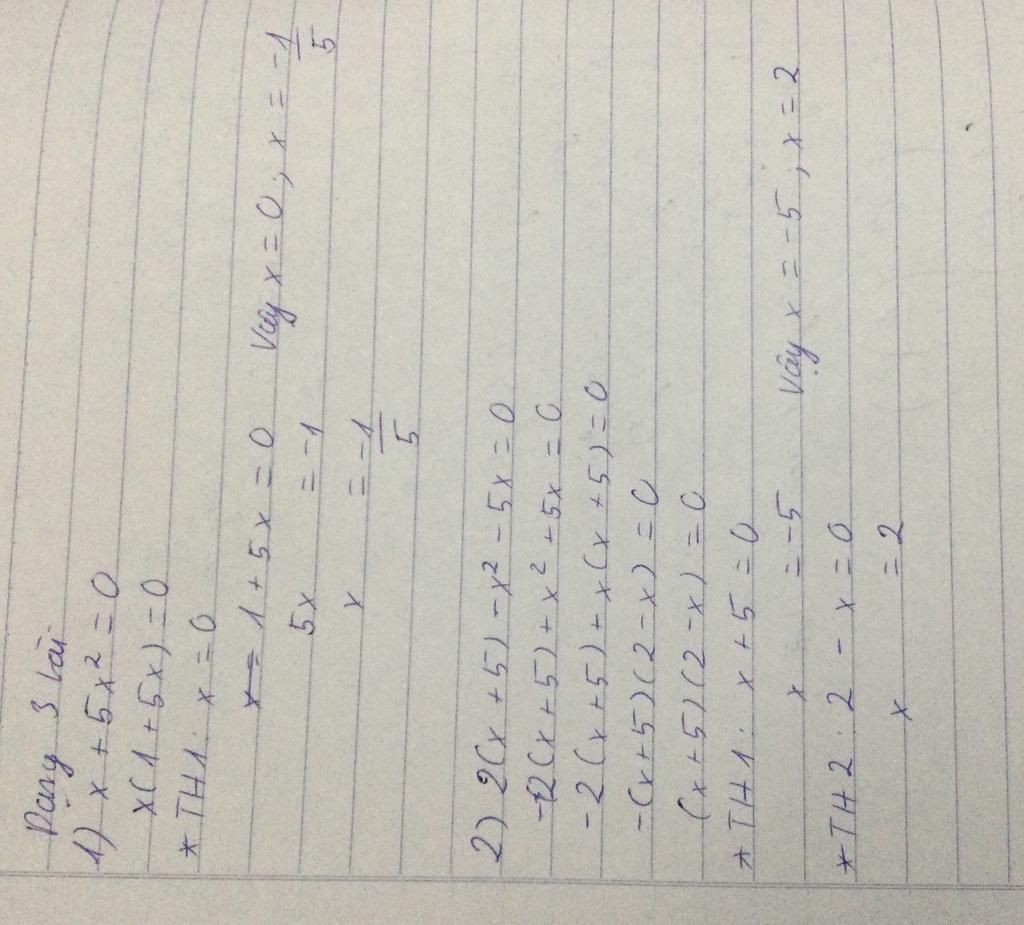 Dạng 3 bài
1) x + 5x² = 0
x(1 + 5x) = 0
* TH1: x = 0
1 + 5x = 0 Vậy x = 0; x = -1/5
5x = -1
x = -1/5
2) 2(x + 5) - x² - 5x = 0
-2(x + 5) + x² + 5x = 0
-2(x + 5) + x(x + 5) = 0
-(x + 5)(2 - x) = 0
(x + 5)(2 - x) = 0
* TH1: x + 5 = 0
x = -5 Vậy x = -5; x = 2
* TH2: 2 - x = 0
x = 2